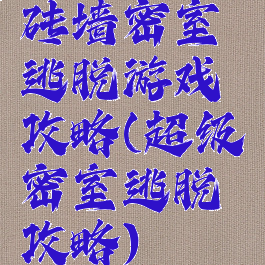 砖墙密室
逃脱游戏
攻略(超级
密室逃脱
攻略)